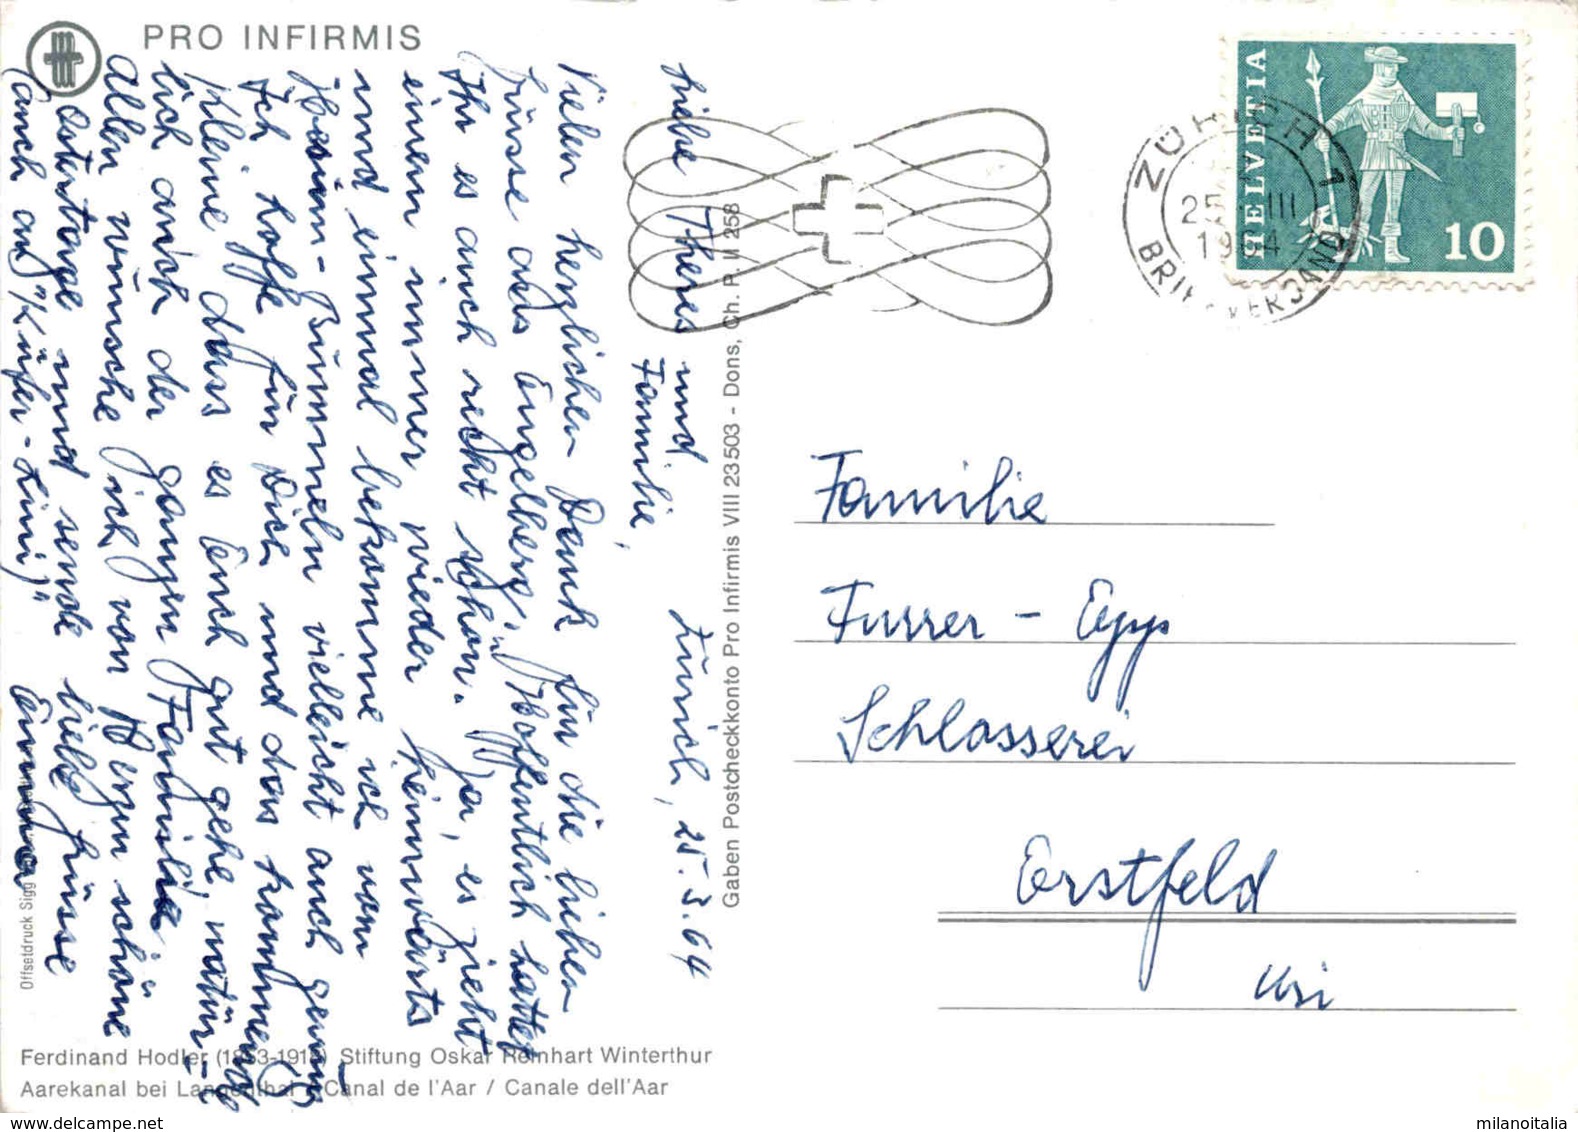 PRO INFIRMIS
Liebe Theres und
Familie,
Zürich, 25.3.64
Vielen herzlichen Dank für die lieben
Grüsse aus Engelberg. Hoffentlich hattet
Ihr es auch recht schön. Ja, es zieht
einen immer wieder heimwärts
und einmal bekomme ich vom
Bummeln vielleicht auch genug
Ich hoffe für Dich und das kommende
Kleine dass es Euch gut gehe, natür-
lich auch der ganzen Familie.
Allen wünsche ich von Herzen schöne
Ostertage und sende liebe Grüsse
(auch an "Küfer-Lini)"
Emma
Familie
Furrer - Epp
Schlosserei
Erstfeld
Uri
HELVETIA
10
ZÜRICH 1
25. III
1964
BRIEFVERSAND
Gaben Postcheckkonto Pro Infirmis VIII 23503 - Dons, Ch. P. II 258
Offsetdruck Sigg
Ferdinand Hodler (1853-1918) Stiftung Oskar Reinhart Winterthur
Aarekanal bei Langenthal / Canal de l'Aar / Canale dell'Aar
www.delcampe.net
milanoitalia